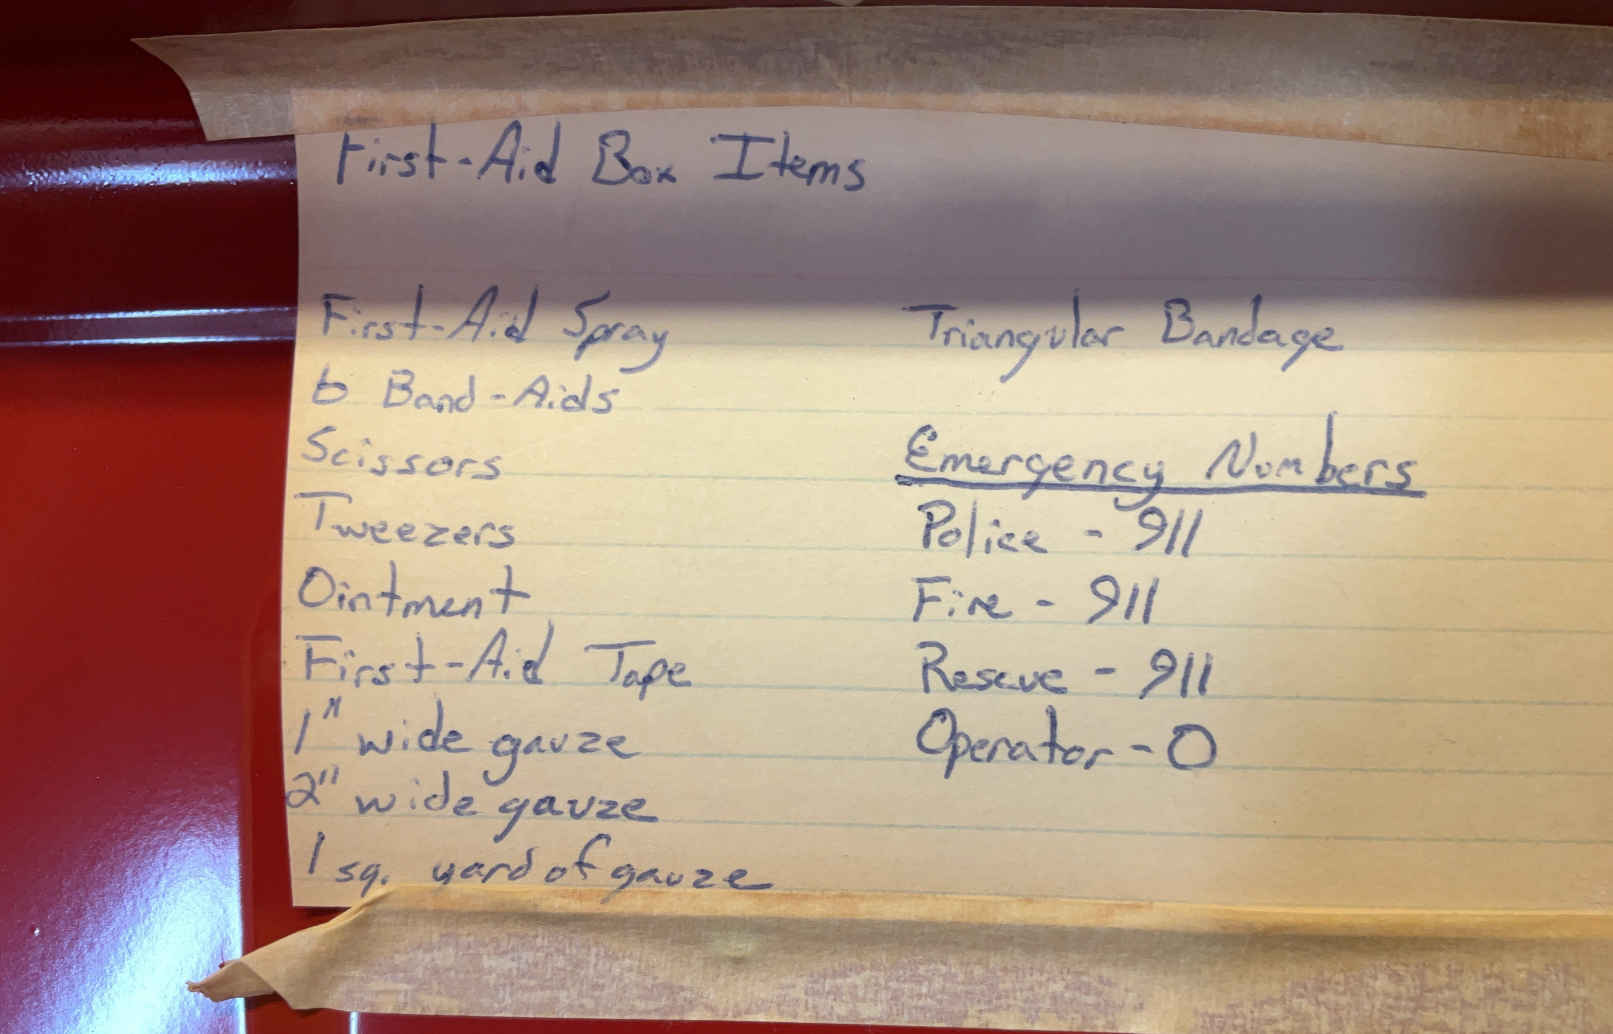 First-Aid Box Items
First-Aid Spray
6 Band-Aids
Scissors
Tweezers
Ointment
First-Aid Tape
1" wide gauze
2" wide gauze
1 sq. yard of gauze
Triangular Bandage
Emergency Numbers
Police - 911
Fire - 911
Rescue - 911
Operator - O